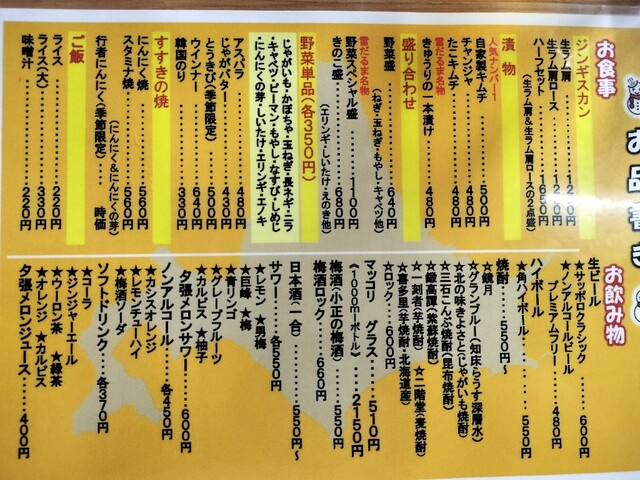 お品書き
お食事
ジンギスカン
生ラム肩‥‥‥‥1210円
生ラム肩ロース‥‥1210円
ハーフセット‥‥1650円
(生ラム肩&生ラム肩ロースの2点盛)
漬物
人気ナンバー1
自家製キムチ‥‥500円
チャンジャ‥‥‥480円
たこキムチ‥‥‥480円
雪だるま名物
きゅうりの一本漬け‥‥480円
盛り合わせ
野菜盛‥‥‥640円
(ねぎ・玉ねぎ・もやし・キャベツ他)
雪だるま名物
野菜スペシャル盛‥‥1100円
きのこ盛‥‥‥680円
(エリンギ・しいたけ・えのき他)
野菜単品(各350円)
じゃがいも・かぼちゃ・玉ねぎ・長ネギ・ニラ
・キャベツ・ピーマン・もやし・なすび・しめじ
・にんにくの芽・しいたけ・エリンギ・エノキ
アスパラ‥‥‥480円
じゃがバター‥‥430円
とうきび(季節限定)‥‥500円
ウインナー‥‥‥640円
韓国のり‥‥‥330円
すすきの焼
にんにく焼‥‥‥560円
スタミナ焼‥‥‥560円
(にんにく&にんにくの芽)
行者にんにく(季節限定)‥‥時価
ご飯
ライス‥‥‥220円
ライス(大)‥‥‥330円
味噌汁‥‥‥220円
お飲み物
生ビール
★サッポロクラシック‥‥600円
★ノンアルコールビール
プレミアムフリー‥‥480円
ハイボール
★角ハイボール‥‥550円
焼酎‥‥‥550円〜
★鏡月
★グランブルー(知床らうす深層水)
★北の味きよさと(じゃがいも焼酎)
★三石こんぶ焼酎(昆布焼酎)
★鍛高譚(紫蘇焼酎)
★一刻者(芋焼酎) ★二階堂(麦焼酎)
★喜多里(芋焼酎・北海道産)
★ロック‥‥‥600円
マッコリ グラス‥‥510円
(1000mlボトル)‥‥2150円
梅酒(小正の梅酒)‥‥550円
梅酒ロック‥‥‥660円
日本酒(一合)‥‥‥550円〜
サワー‥‥‥各550円
★レモン ★男梅
★巨峰 ★梅
★青リンゴ
★グレープフルーツ
★カルピス ★柚子
夕張メロンサワー‥‥600円
ノンアルコール‥‥各450円
★カシスオレンジ
★レモンチューハイ
★梅酒ソーダ
ソフトドリンク‥‥各370円
★コーラ
★ジンジャーエール
★ウーロン茶 ★緑茶
★オレンジ ★カルピス
夕張メロンジュース‥‥400円